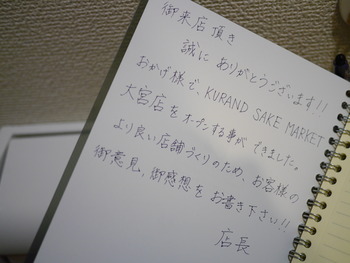 御来店頂き
誠に ありがとうございます!!
おかげ様で、KURAND SAKE MARKET
大宮店を オープンする事が できました。
より良い店舗づくりのため、お客様の
御意見、御感想を お書き下さい!!
店長